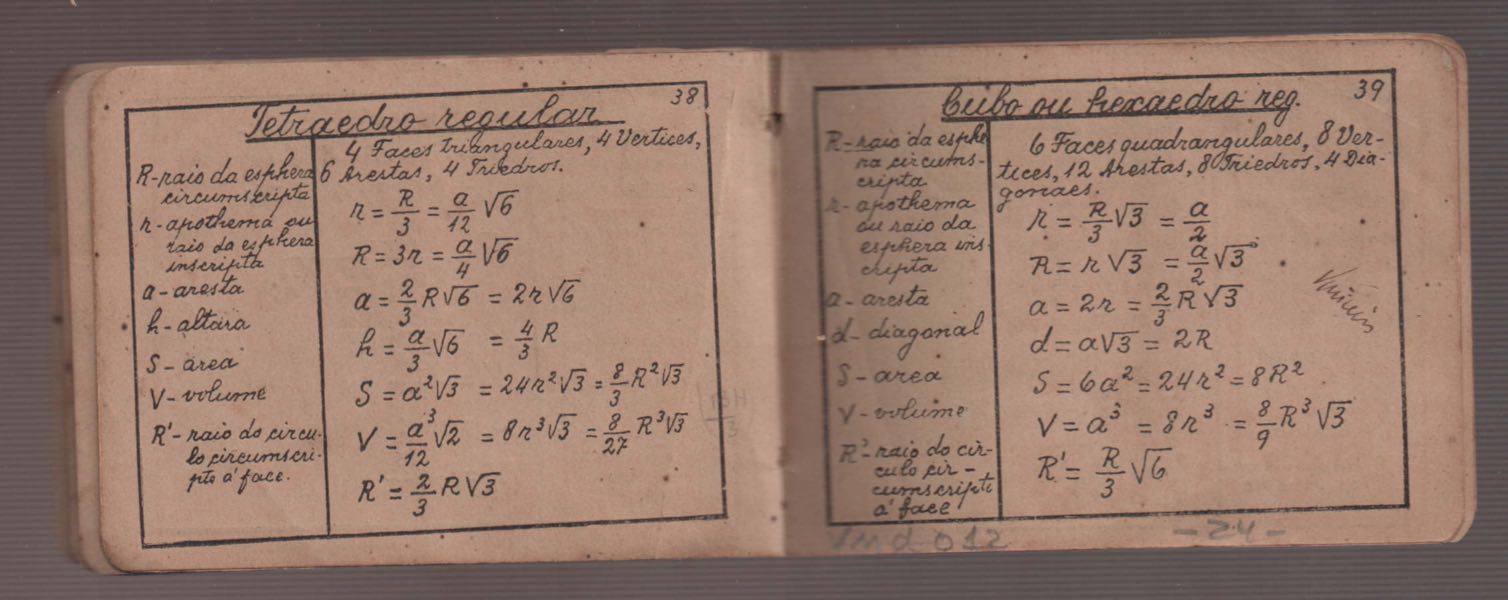 38
Tetraedro regular
R-raio da esphera
circumscripta
r-apothema ou
raio da esphera
inscripta
a-aresta
h-altura
S-area
V-volume
R'-raio do circu-
lo circumscri-
pto á face.
4 Faces triangulares, 4 Vertices,
6 Arestas, 4 Triedros.
r = R/3 = a/12 √6
R = 3r = a/4 √6
a = 2/3 R√6 = 2r√6
h = a/3 √6 = 4/3 R
S = a²√3 = 24r²√3 = 8/3 R²√3
V = a³/12 √2 = 8r³√3 = 8/27 R³√3
R' = 2/3 R√3
39
Cubo ou hexaedro reg.
R-raio da esphe
ra circums-
cripta
r-apothema
ou raio da
esphera ins-
cripta
a-aresta
d-diagonal
S-area
V-volume
R'-raio do cir-
culo cir-
cumscripto
á face
6 Faces quadrangulares, 8 Ver-
tices, 12 Arestas, 8 Triedros, 4 Dia-
gonaes.
r = R/3 √3 = a/2
R = r√3 = a/2 √3
a = 2r = 2/3 R√3
d = a√3 = 2R
S = 6a² = 24r² = 8R²
V = a³ = 8r³ = 8/9 R³√3
R' = R/3 √6
012
-24-